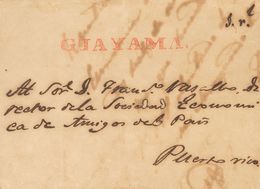 J. r.l
GUAYAMA.
Al Sor. D. Fran.co Vasallo, di
rector de la Sociedad Econom
ica de Amigos del Pais
Puerto rico